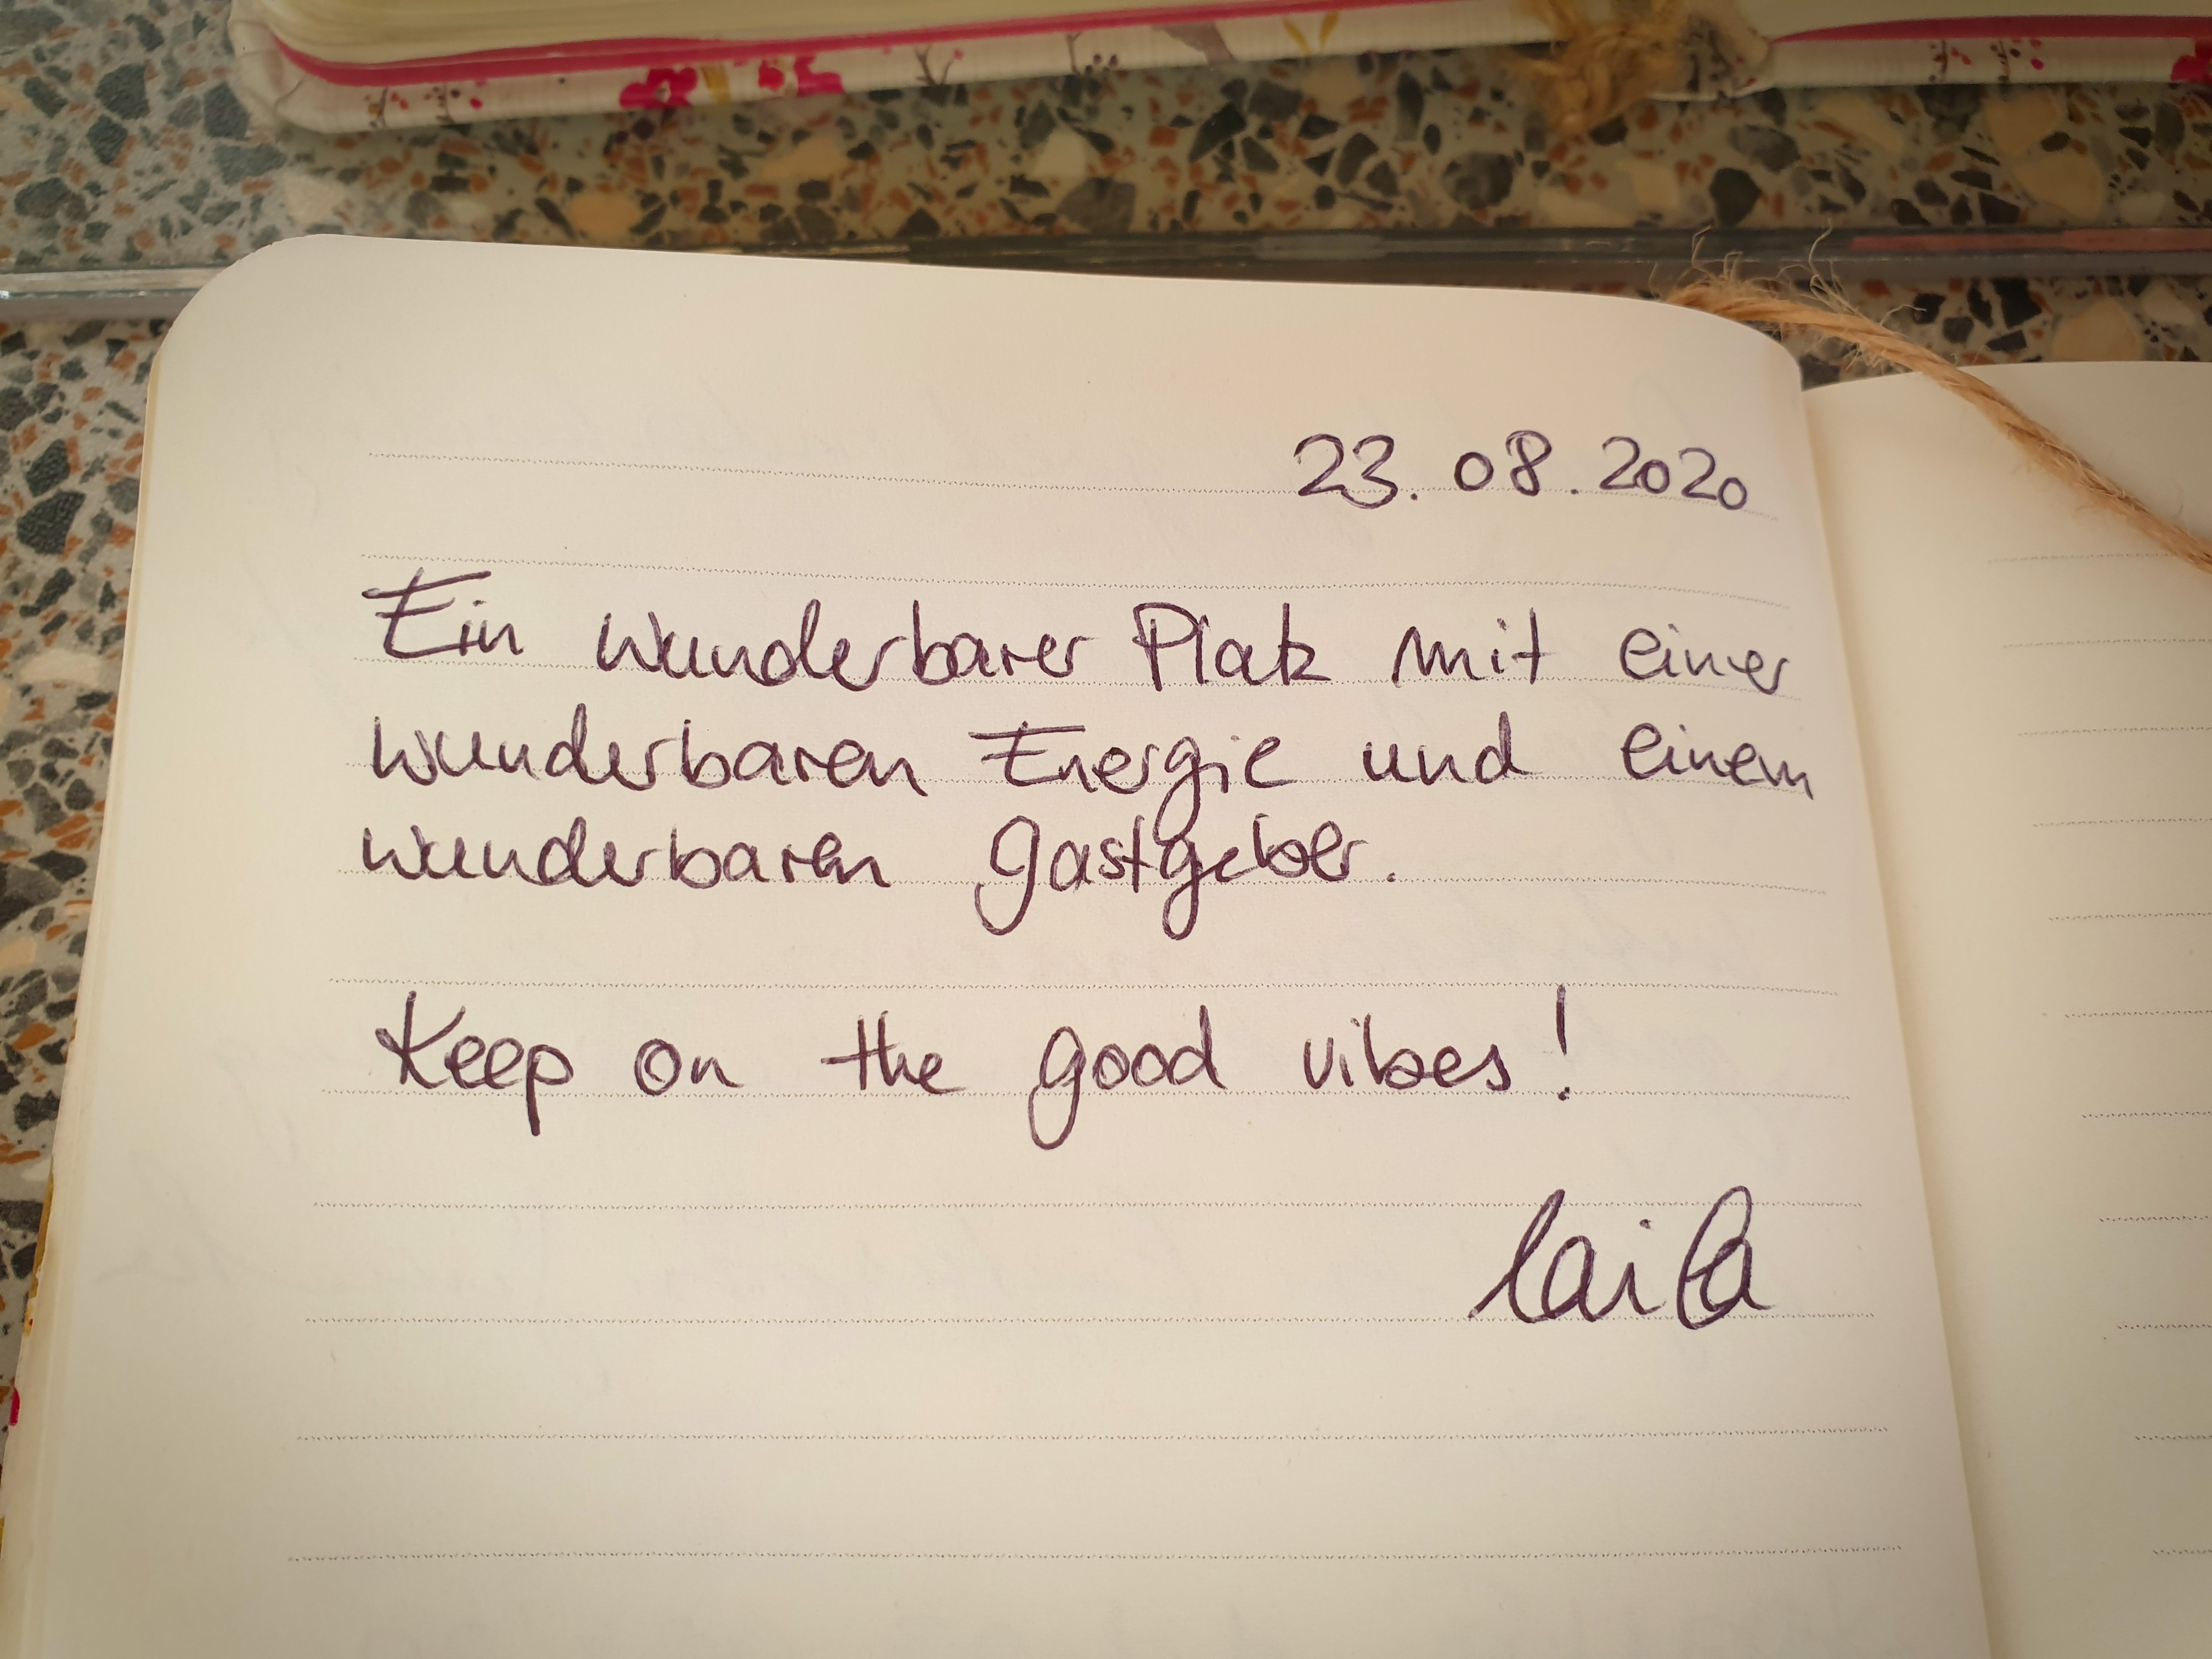 23.08.2020
Ein wunderbarer Platz mit einer
wunderbaren Energie und einem
wunderbaren Gastgeber.
Keep on the good vibes!
Laila